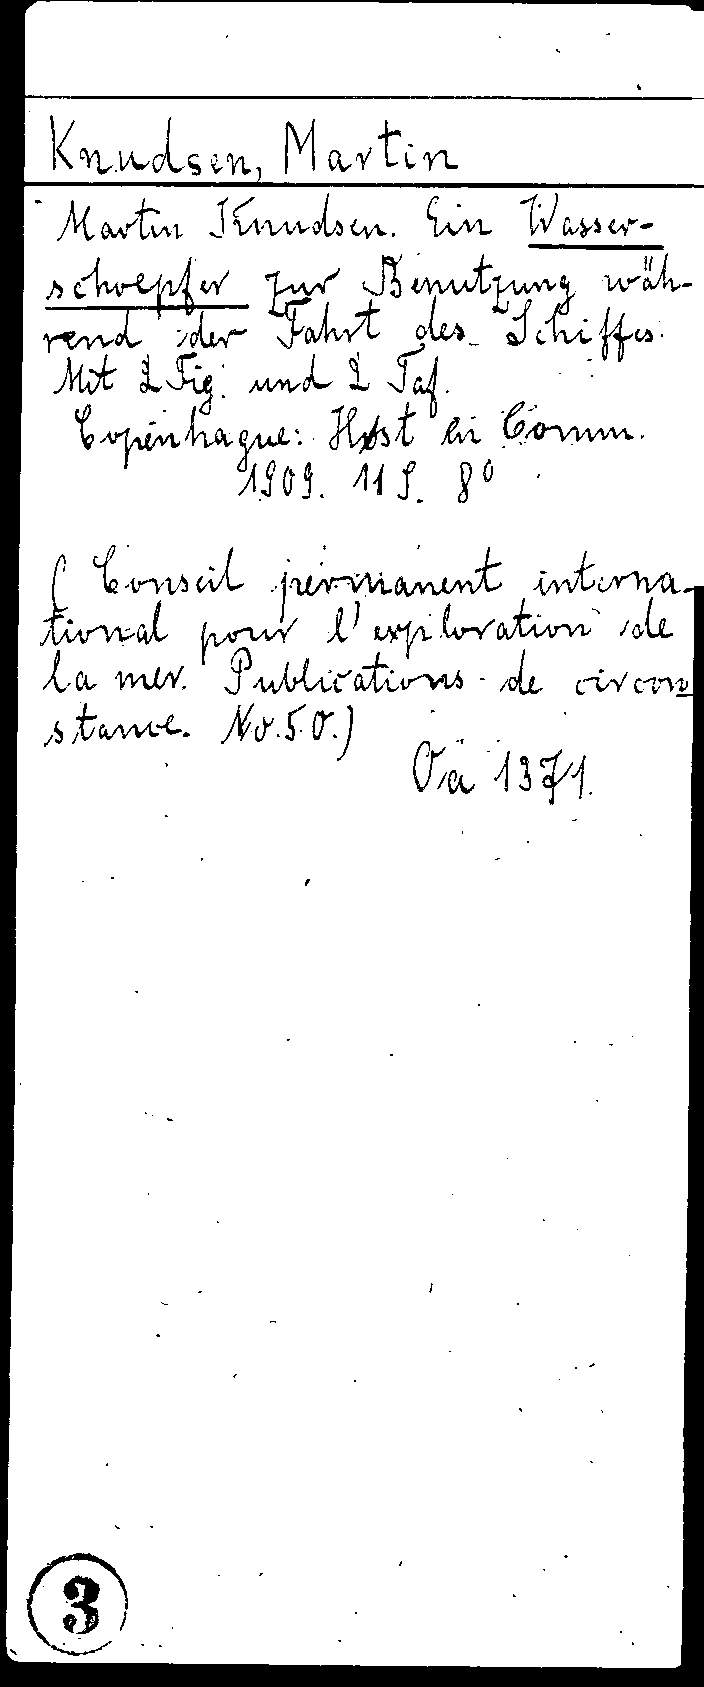 Knudsen, Martin
Martin Knudsen. Ein Wasser-
schoepfer zur Benutzung wäh-
rend der Fahrt des Schiffes.
Mit 2 Fig. und 2 Taf.
Copenhague: Høst in Comm.
1909. 11 S. 8°
(Conseil permanent interna-
tional pour l'exploration de
la mer. Publications de circon
stance. No. 50.)
Oa 1371.
3